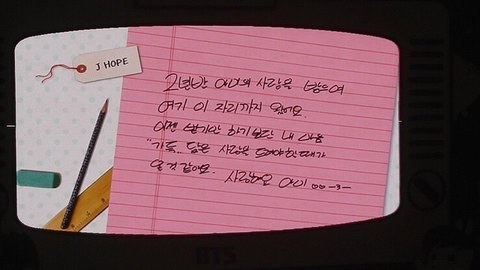 J HOPE
2년반 아미의 사랑을 받으며
여기 이 자리까지 왔어요.
이젠 받기만 하기보단 내 마음
"가득.. 담은 사랑을 줘야할때가
온 것 같아요. 사랑해요 아미
BTS